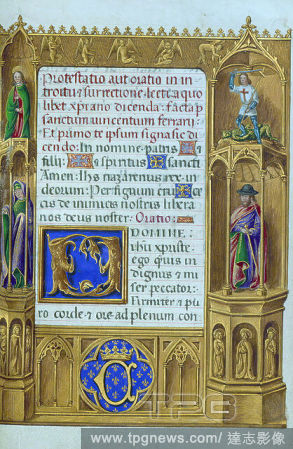 Protestatio aut oratio in in
troitu & surrectione lecti a quo
libet xp̄iano dicenda: facta p
sanctum uincentum ferrarii:
Et primo te ipsum signa sic di
cendo: In nomine patris &
filii: & spiritus sancti
Amen: Ihs nazarenus rex iu
deorum: Per signum cru
cis de inimicis nostris libera
nos deus noster: Oratio:
DOMINE:
ihu xpiste:
ego quis in
dignus & mi
ser peccator:
Firmiter & pu
ro corde & ore ad plenum con
TPG
www.tpgnews.com / 達志影像